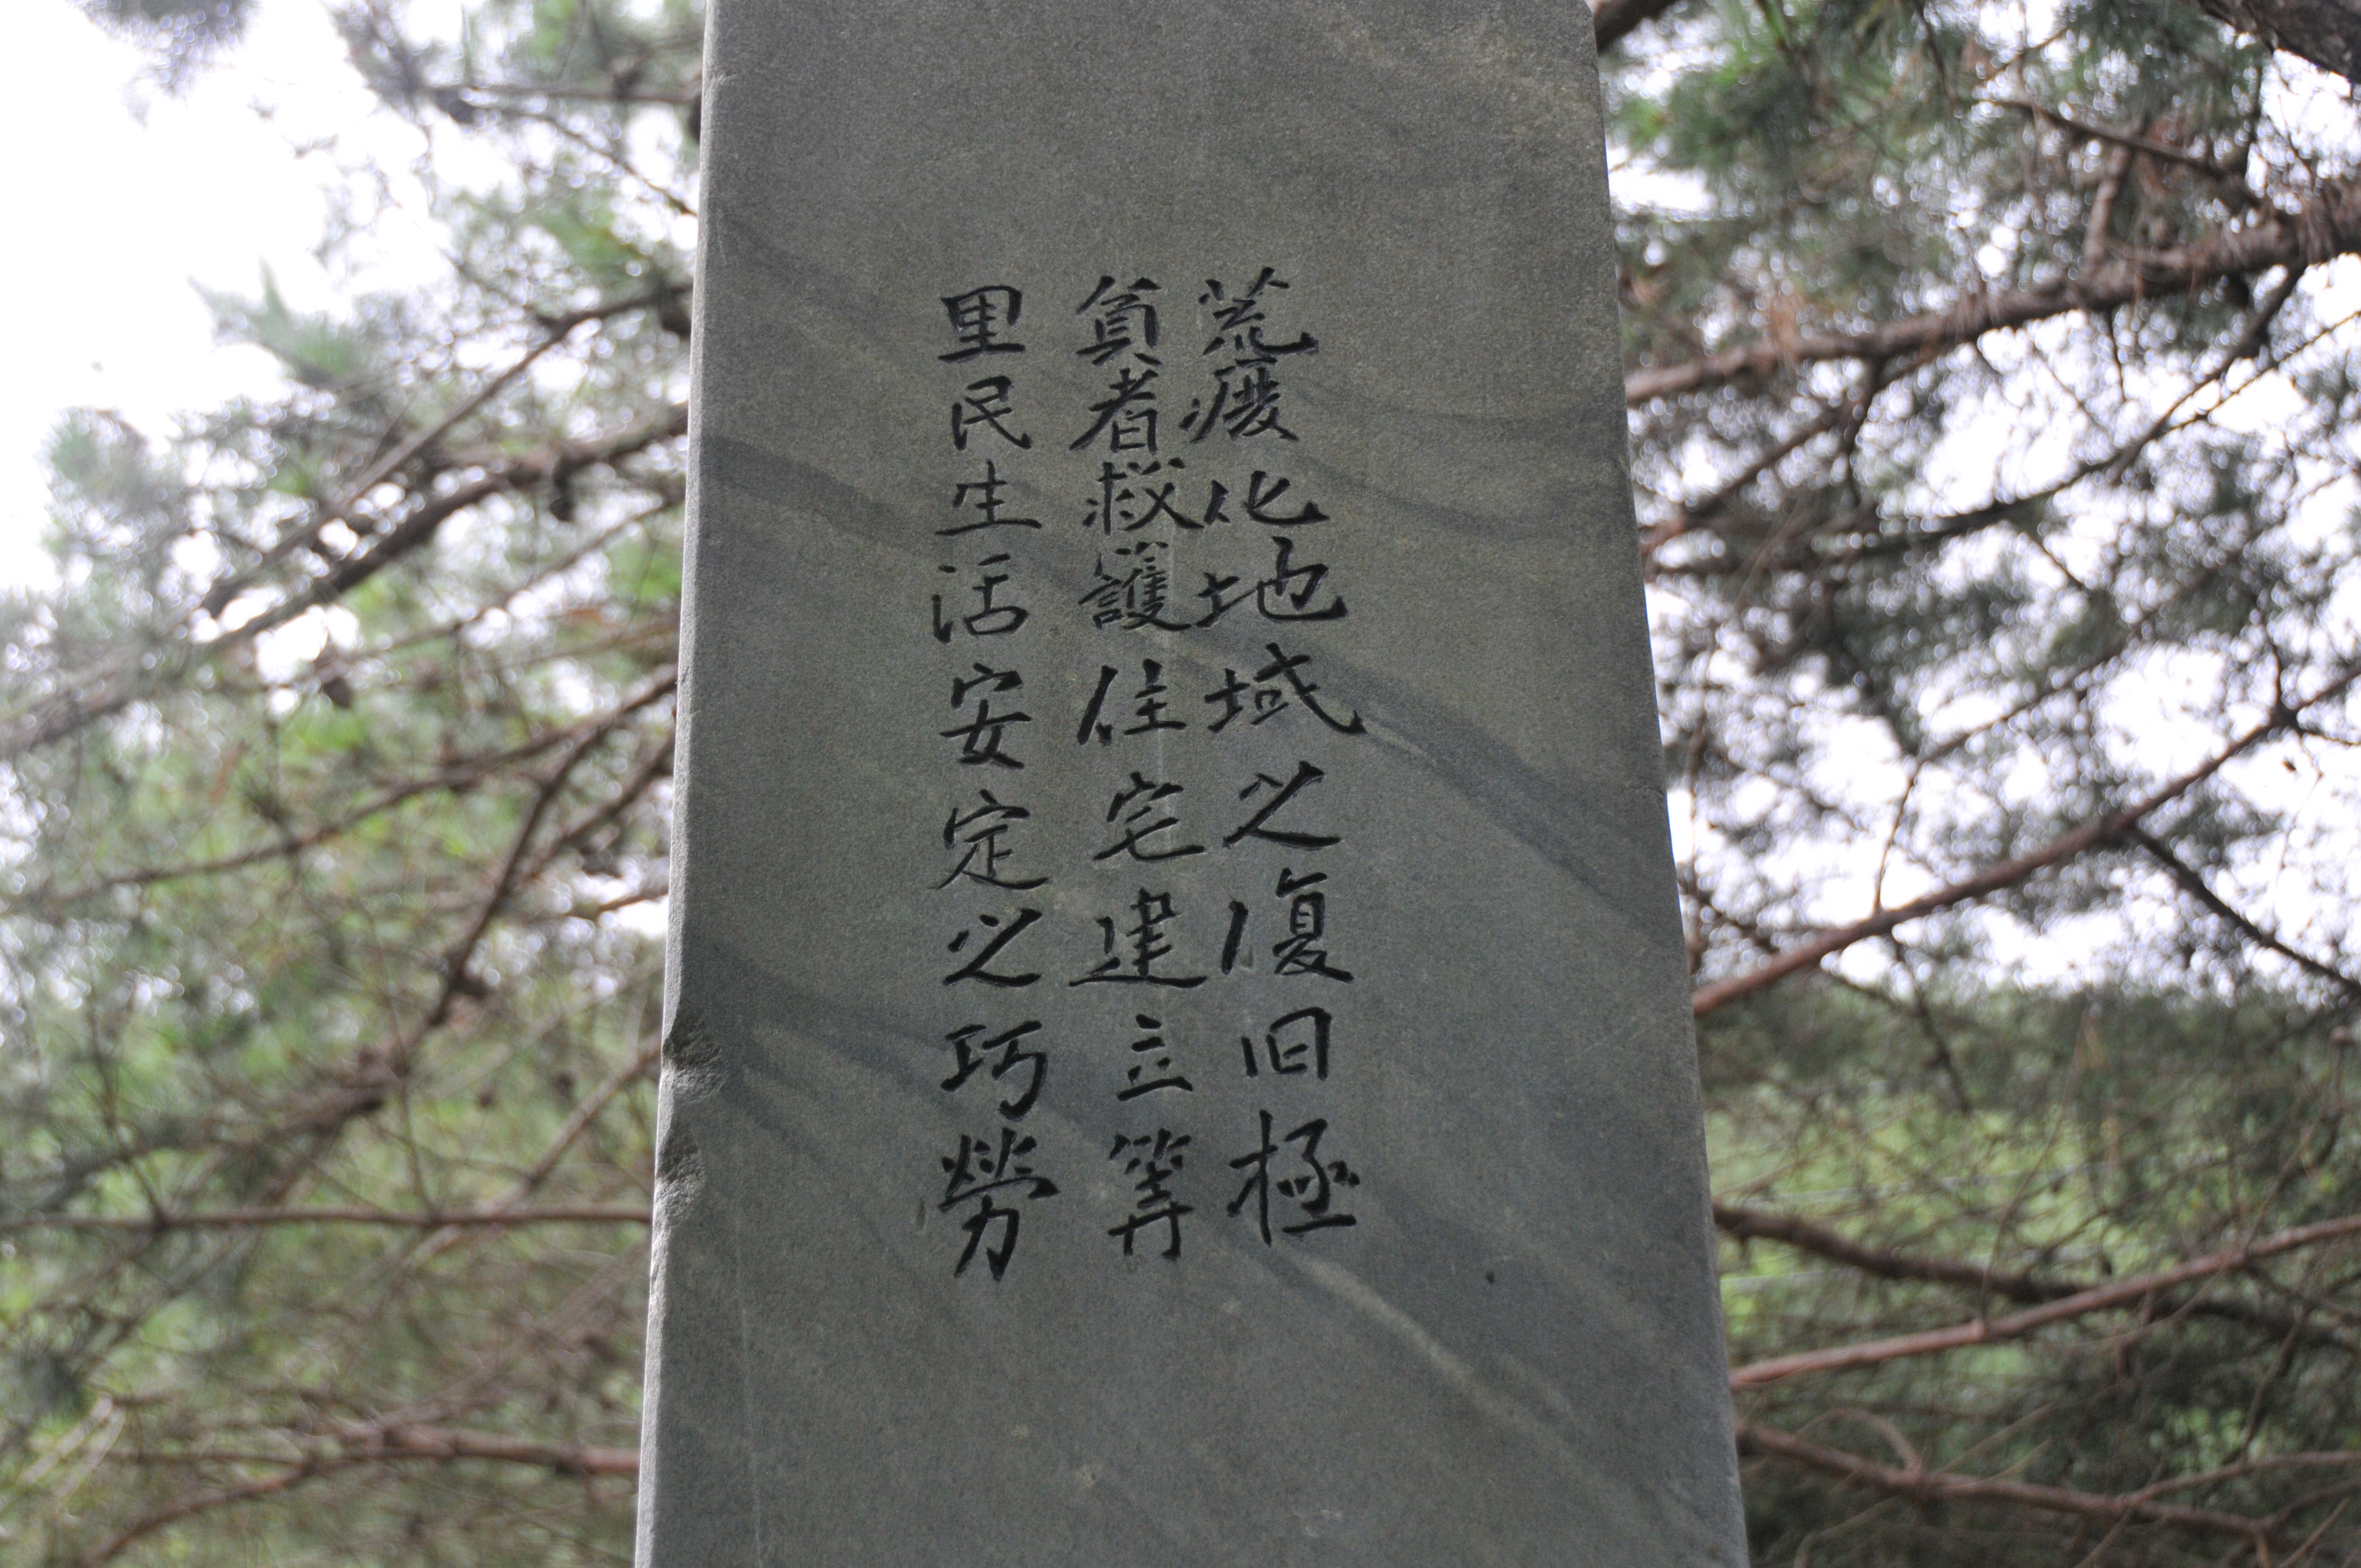 荒廢化地域之復旧極
貧者救護住宅建立等
里民生活安定之巧勞